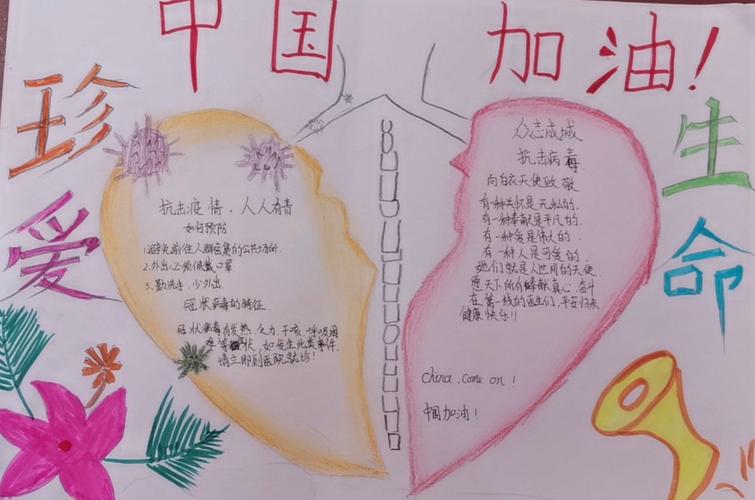 中国 加油!
珍爱
生命
抗击疫情,人人有责
如何预防
1.避免前往人群密集的公共场所.
2.外出必须佩戴口罩
3.勤洗手,少外出
冠状病毒的特征
冠状病毒有发热,乏力,干咳,呼吸困
难等症状,如发生此类事件.
请立即到医院就诊!
众志成城
抗击病毒
向白衣天使致敬
有一种关怀是无私的.
有一种奉献是平凡的.
有一种爱是伟大的.
有一种人是可爱的.
她们就是人世间的天使
愿天下所有奉献真心,奋斗
在第一线的医生们,平安归来
健康快乐!!
china.come on!
中国加油!